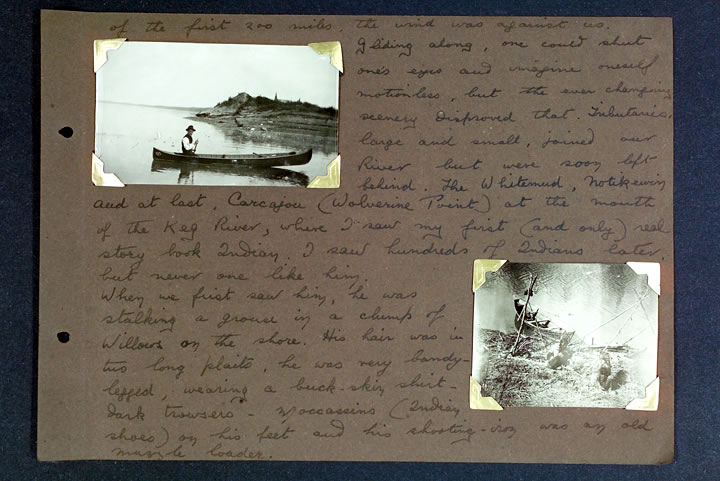 of the first 200 miles, the wind was against us.
Gliding along, one could shut
one's eyes and imagine oneself
motionless, but the ever changing
scenery disproved that. Tributaries,
large and small, joined our
River but were soon left
behind. The Whitemud, Notikewin
and at last, Carcajou (Wolverine Point) at the mouth
of the Keg River, where I saw my first (and only) real
story book Indian. I saw hundreds of Indians later,
but never one like him.
When we first saw him, he was
stalking a grouse in a clump of
Willows on the shore. His hair was in
two long plaits, he was very bandy-
legged, wearing a buck-skin shirt -
dark trousers - moccassins (Indian
shoes) on his feet and his shooting-iron was an old
muzzle loader.